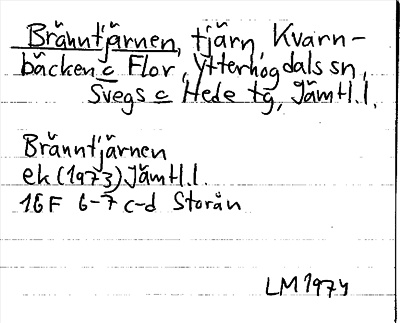 Bränntjärnen, tjärn, Kvarn-
bäcken c Flor, Ytterhogdals sn,
Svegs c Hede tg, Jämtl.l.
Bränntjärnen
ek (1973) Jämtl.l.
16F 6-7 c-d Storån
LM 1974